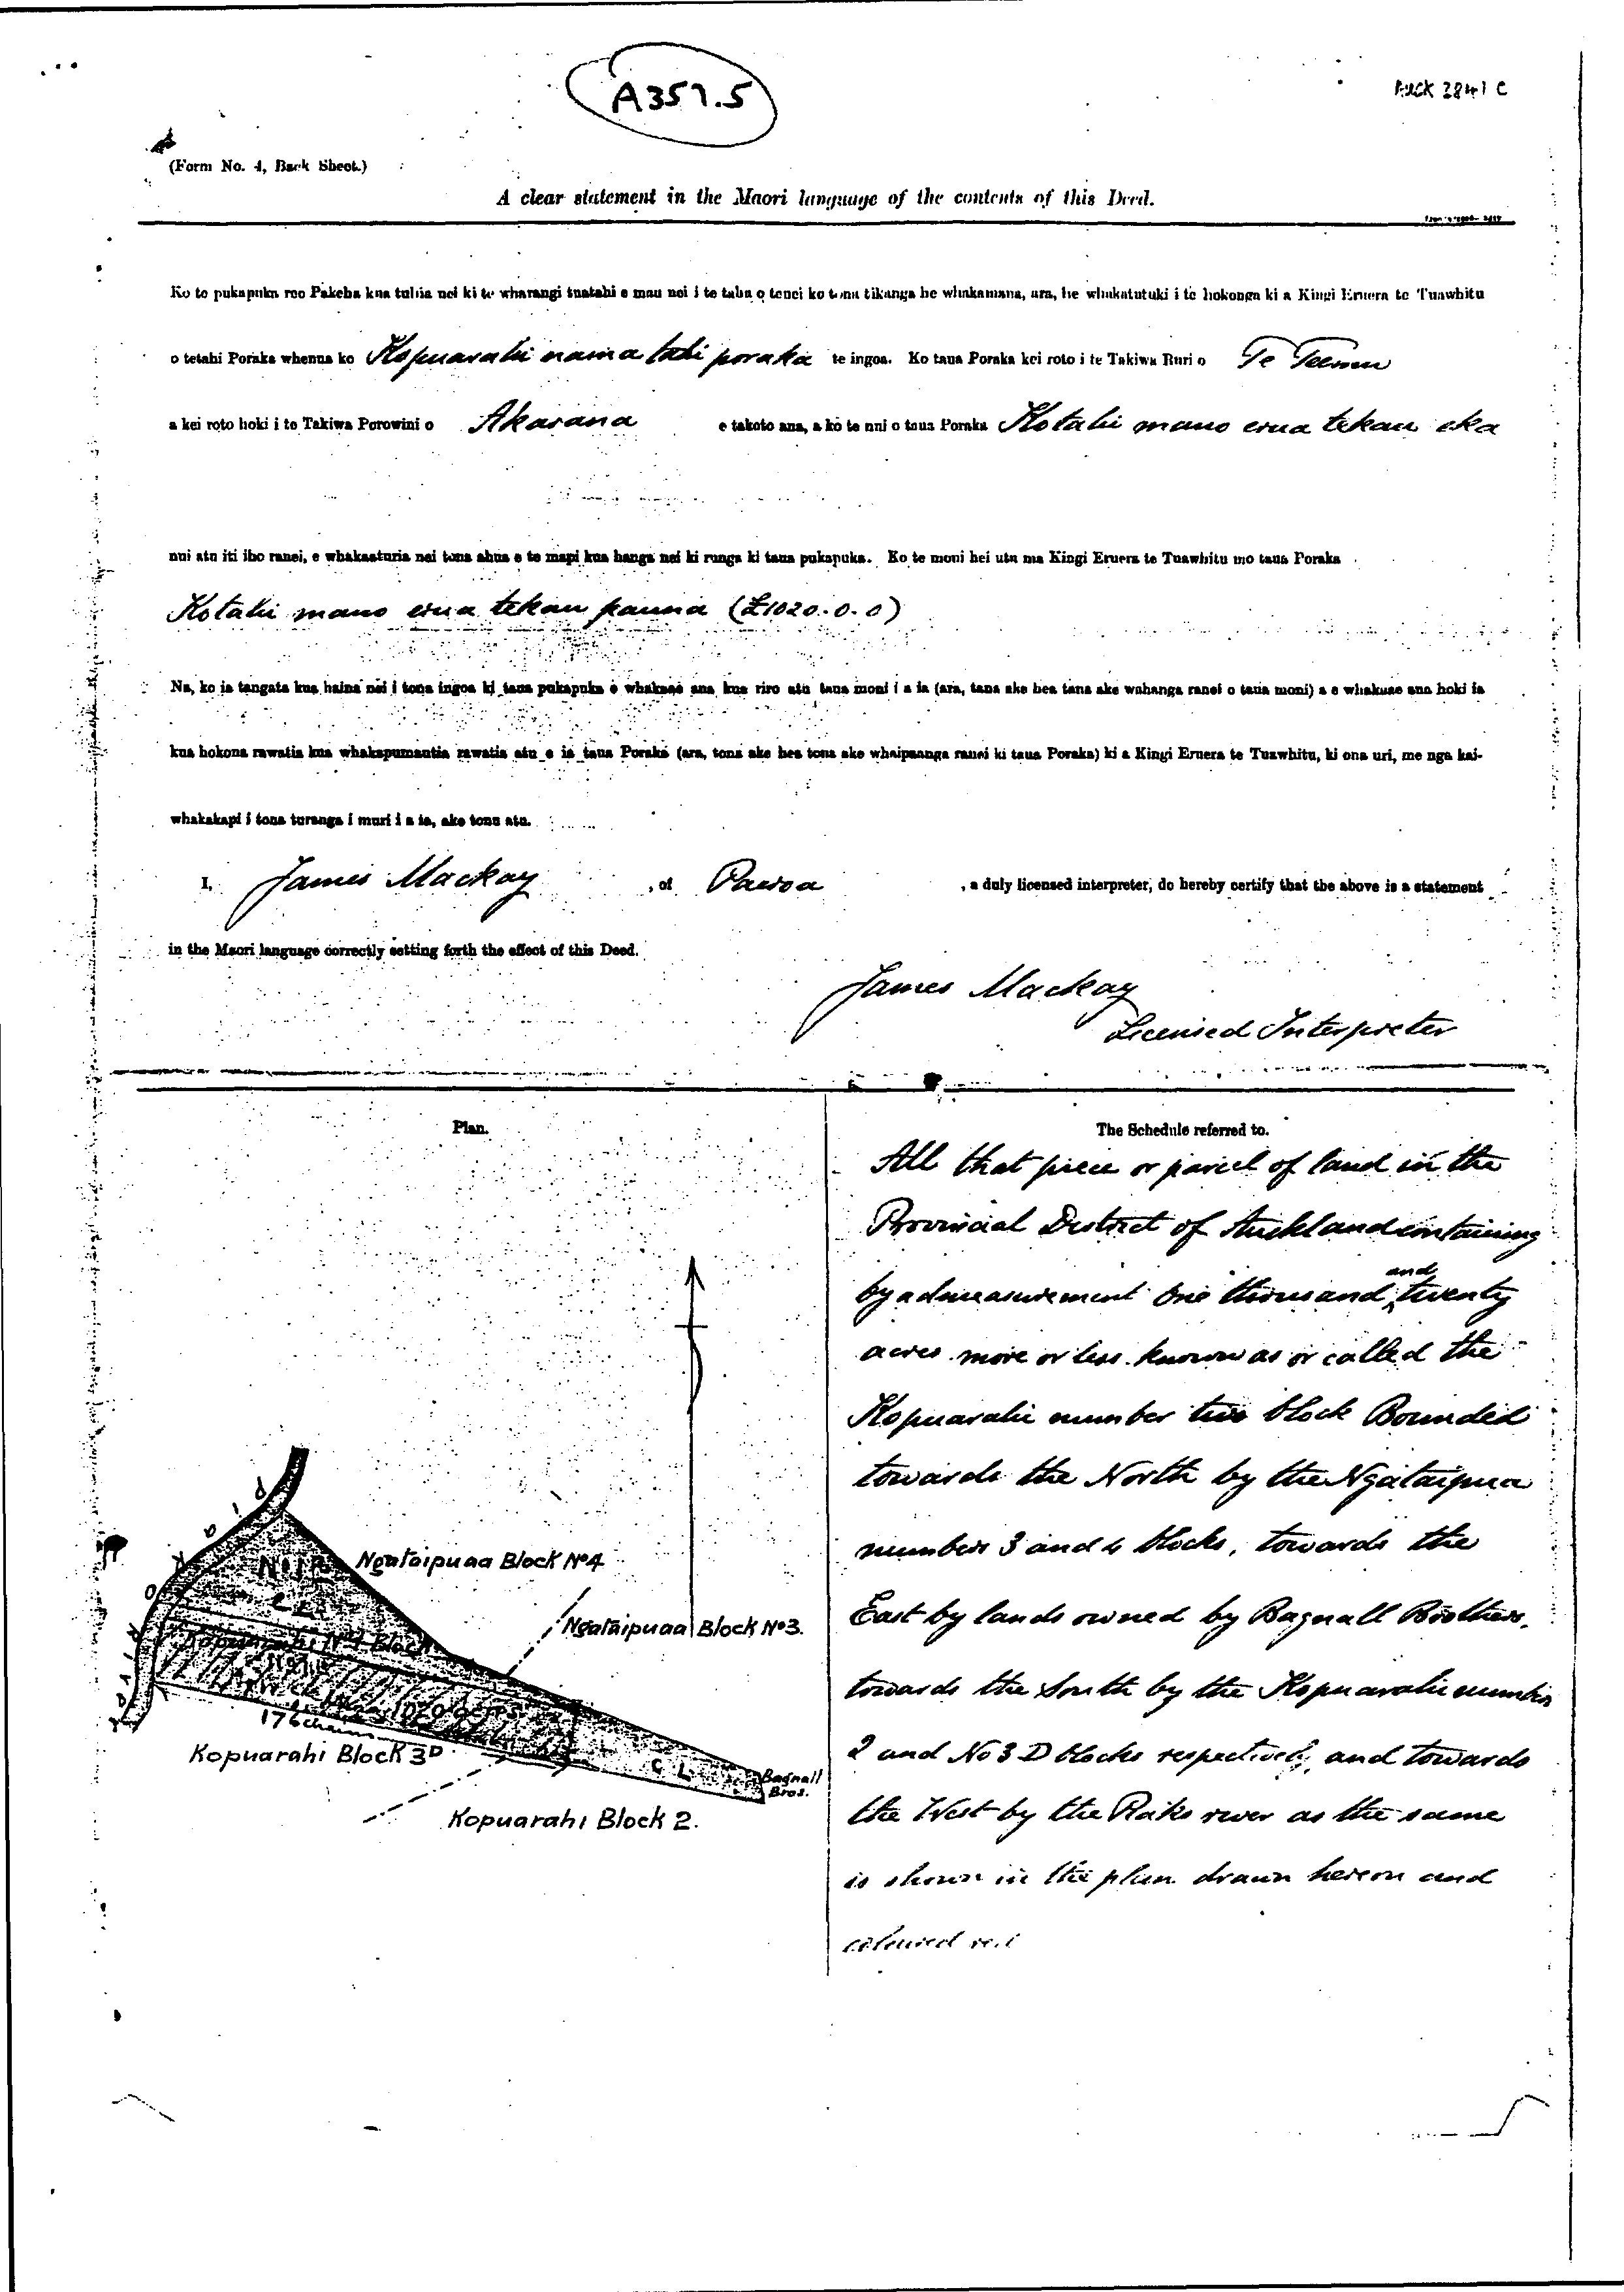 A357.5
(Form No. 4, Back Sheet.)
A clear statement in the Maori language of the contents of this Deed.
Ko te pukapuka reo Pakeha kua tuhia nei ki te wharangi tuatahi e mau nei i te taha o tenei ko tona tikanga he whakamana, ara, he whakatutuki i te hokonga ki a Kingi Eruera te Tuawhitu
o tetahi Poraka whenua ko Kopuarahi nama tahi poraka te ingoa. Ko taua Poraka kei roto i te Takiwa Ruri o Te
a kei roto hoki i te Takiwa Porowini o Akarana e takoto ana, a ko te nui o taua Poraka Kotahi mano erua tekau eka
nui atu iti iho ranei, e whakaaturia nei tona ahua e te mapi kua hanga nei ki runga ki taua pukapuka. Ko te moni hei utu ma Kingi Eruera te Tuawhitu mo taua Poraka
Kotahi mano erua tekau pauna (£1020.0.0)
Na, ko ia tangata kua haina nei i tona ingoa ki taua pukapuka e whakaae ana kua riro atu taua moni i a ia (ara, tana ake hea tana ake wahanga ranei o taua moni) a e whakaae ana hoki ia
kua hokona rawatia kua whakapumautia rawatia atu e ia taua Poraka (ara, tona ake hea tona ake whaipaanga ranei ki taua Poraka) ki a Kingi Eruera te Tuawhitu, ki ona uri, me nga kai-
whakakapi i tona turanga i muri i a ia, ake tonu atu.
I, James Mackay, of Paeroa, a duly licensed interpreter, do hereby certify that the above is a statement
in the Maori language correctly setting forth the effect of this Deed.
James Mackay
Licensed Interpreter
Plan.
Ngataipuaa Block No4
Ngataipuaa Block No3.
Kopuarahi No1 Block
1020 acres
176 chains
Kopuarahi Block 3D
C L
Bagnall
Bros.
Kopuarahi Block 2.
The Schedule referred to.
All that piece or parcel of land in the
Provincial District of Auckland containing
by admeasurement One thousand and twenty
acres more or less known as or called the
Kopuarahi number two block Bounded
towards the North by the Ngataipua
numbers 3 and 4 blocks, towards the
East by lands owned by Bagnall Brothers,
towards the South by the Kopuarahi number
2 and No 3 D blocks respectively, and towards
the West by the Piako river as the same
is shown in the plan drawn hereon and
coloured red